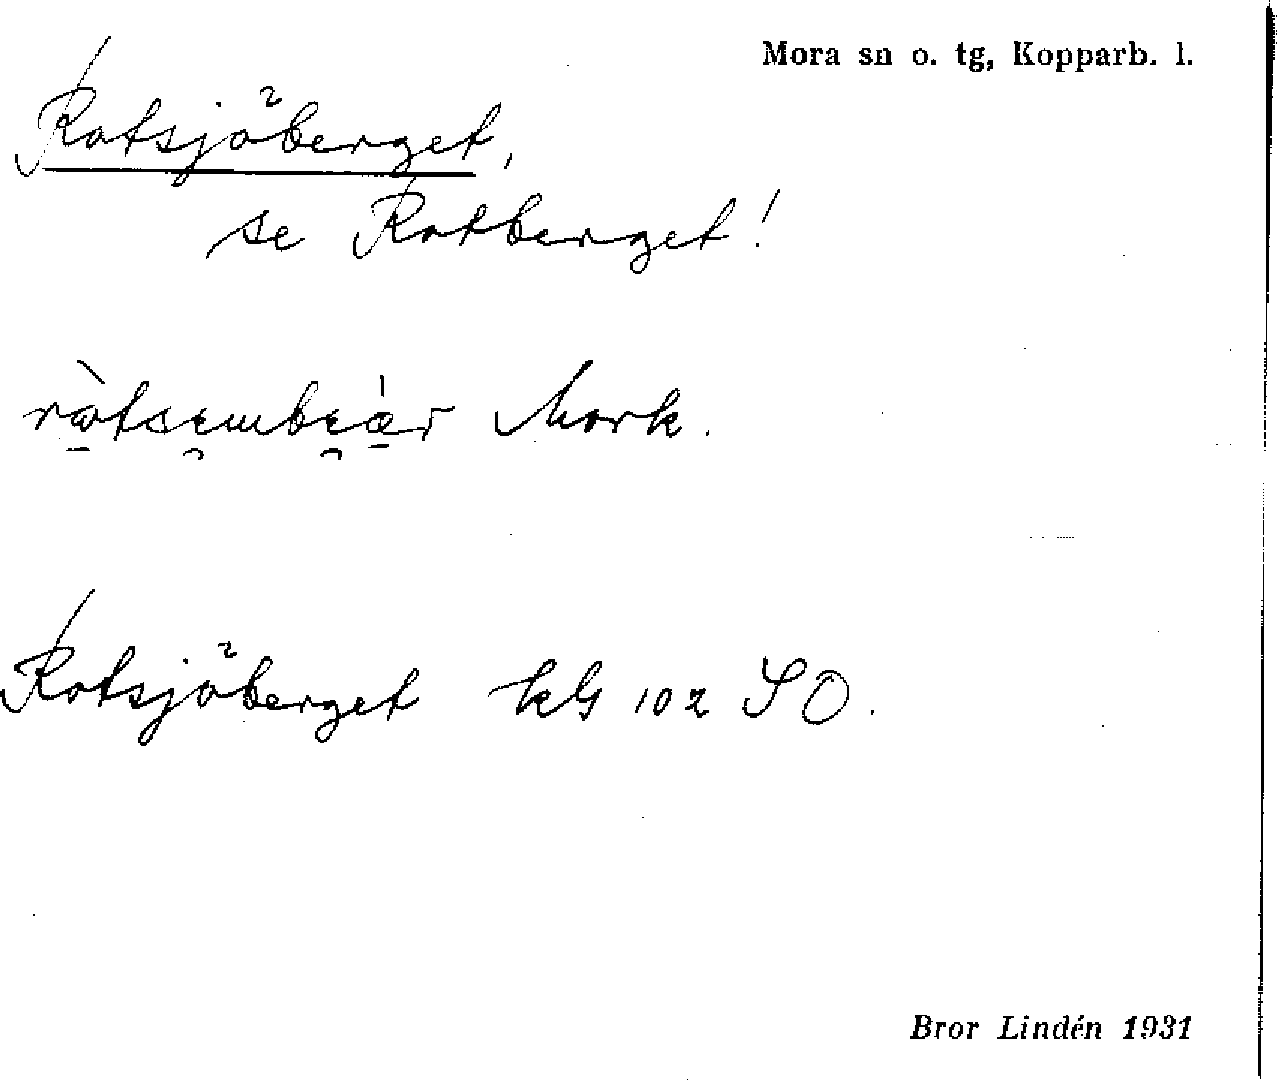 Mora sn o. tg, Kopparb. l.
Rotsjöberget,
se Rotberget!
Mork.
Rotsjöberget kbl 102 SO.
Bror Lindén 1931